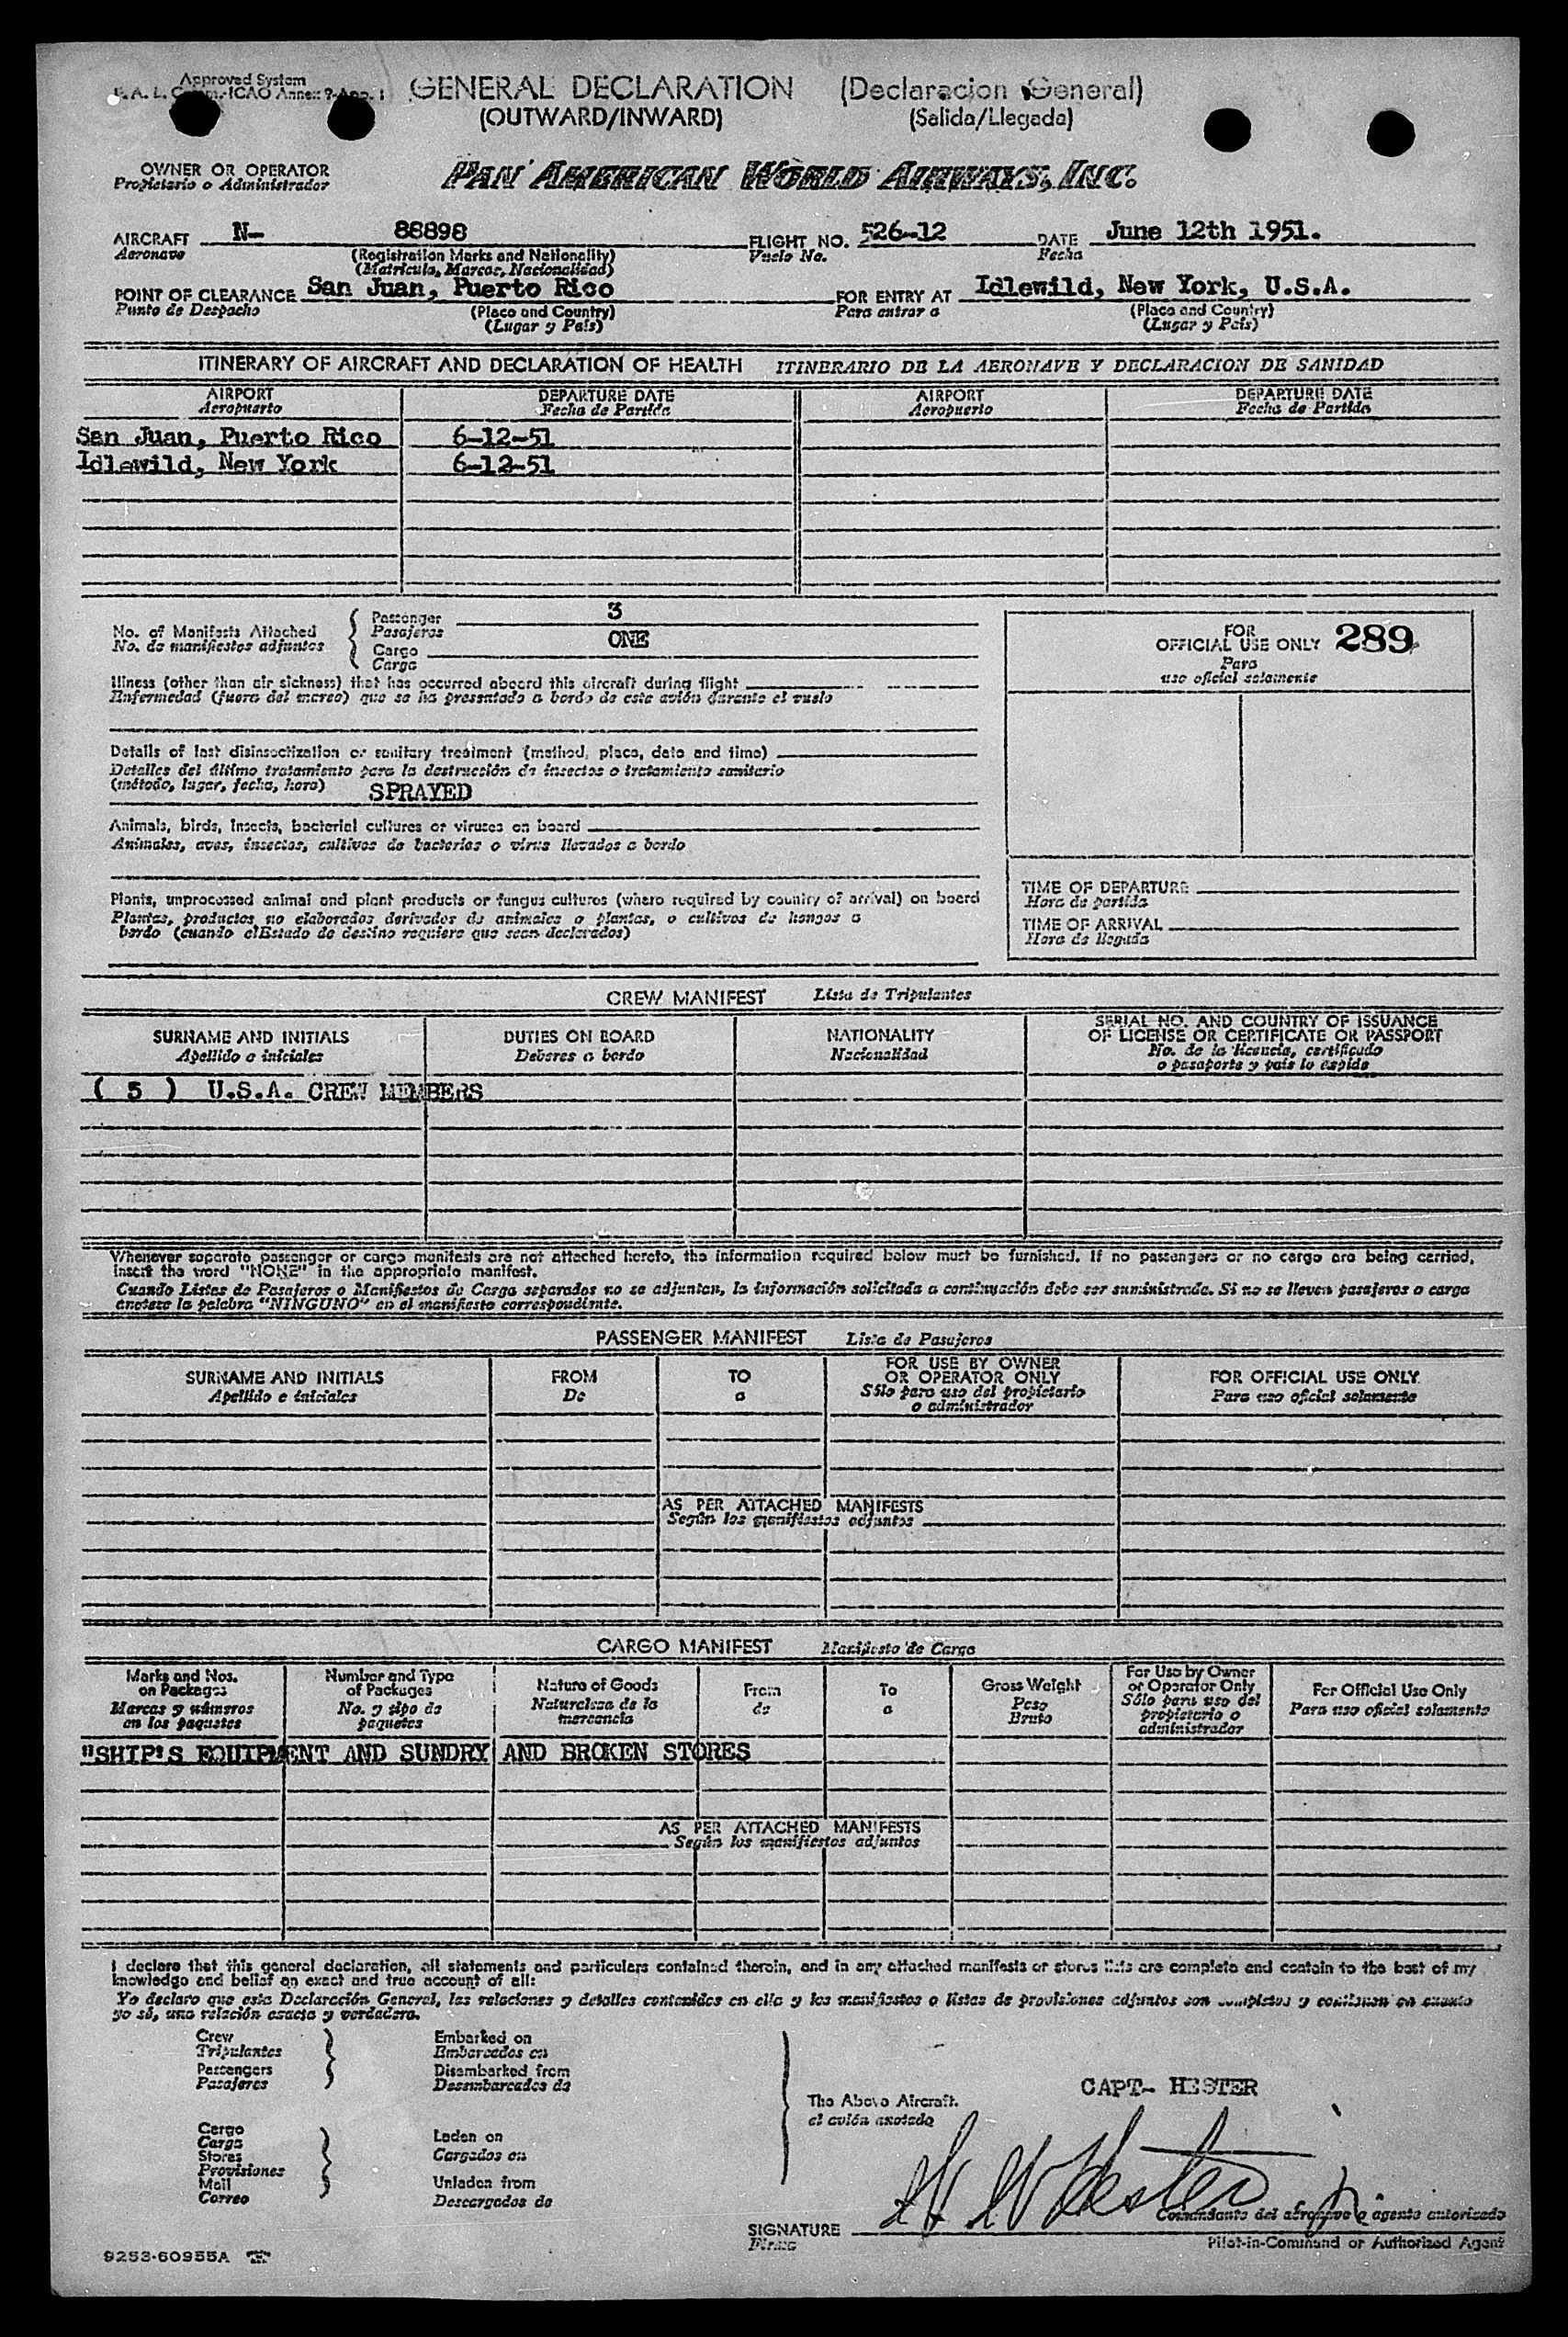 Approved System
GENERAL DECLARATION (Declaracion General)
(OUTWARD/INWARD) (Salida/Llegada)
OWNER OR OPERATOR
Propietario o Administrador
PAN AMERICAN WORLD AIRWAYS, INC.
AIRCRAFT N- 88898 FLIGHT NO. 526-12 DATE June 12th 1951.
Aeronave (Registration Marks and Nationality) Vuelo No. Fecha
(Matricula, Marcas, Nacionalidad)
POINT OF CLEARANCE San Juan, Puerto Rico FOR ENTRY AT Idlewild, New York, U.S.A.
Punto de Despacho (Place and Country) Para entrar a (Place and Country)
(Lugar y País) (Lugar y País)
ITINERARY OF AIRCRAFT AND DECLARATION OF HEALTH ITINERARIO DE LA AERONAVE Y DECLARACION DE SANIDAD
AIRPORT DEPARTURE DATE AIRPORT DEPARTURE DATE
Aeropuerto Fecha de Partida Aeropuerto Fecha de Partida
San Juan, Puerto Rico 6-12-51
Idlewild, New York 6-12-51
No. of Manifests Attached
No. de manifiestos adjuntos
Passenger 3
Pasajeros
Cargo ONE
Carga
FOR
OFFICIAL USE ONLY 289
Para
uso oficial solamente
Illness (other than air sickness) that has occurred aboard this aircraft during flight
Enfermedad (fuera del mareo) que se ha presentado a bordo de este avión durante el vuelo
Details of last disinsectization or sanitary treatment (method, place, date and time)
Detalles del último tratamiento para la destrucción de insectos o tratamiento sanitario
(método, lugar, fecha, hora) SPRAYED
Animals, birds, insects, bacterial cultures or viruses on board
Animales, aves, insectos, cultivos de bacterias o virus llevados a bordo
Plants, unprocessed animal and plant products or fungus cultures (where required by country of arrival) on board
Plantas, productos no elaborados derivados de animales o plantas, o cultivos de hongos a
bordo (cuando el Estado de destino requiere que sean declarados)
TIME OF DEPARTURE
Hora de partida
TIME OF ARRIVAL
Hora de llegada
CREW MANIFEST Lista de Tripulantes
SURNAME AND INITIALS DUTIES ON BOARD NATIONALITY SERIAL NO. AND COUNTRY OF ISSUANCE
OF LICENSE OR CERTIFICATE OR PASSPORT
Apellido e iniciales Deberes a bordo Nacionalidad No. de la licencia, certificado
o pasaporte y país lo espide
( 5 ) U.S.A. CREW MEMBERS
Whenever separate passenger or cargo manifests are not attached hereto, the information required below must be furnished. If no passengers or no cargo are being carried,
insert the word "NONE" in the appropriate manifest.
Cuando Listas de Pasajeros o Manifiestos de Carga separados no se adjuntan, la información solicitada a continuación debe ser suministrada. Si no se lleven pasajeros o carga
anotese la palabra "NINGUNO" en el manifiesto correspondiente.
PASSENGER MANIFEST Lista de Pasajeros
SURNAME AND INITIALS FROM TO FOR USE BY OWNER
OR OPERATOR ONLY FOR OFFICIAL USE ONLY
Apellido e iniciales De a Sólo para uso del propietario
o administrador Para uso oficial solamente
AS PER ATTACHED MANIFESTS
Según los manifiestos adjuntos
CARGO MANIFEST Manifiesto de Carga
Marks and Nos.
on Packages
Marcas y números
en los paquetes
Number and Type
of Packages
No. y tipo de
paquetes
Nature of Goods
Naturaleza de la
mercancia
From
de
To
a
Gross Weight
Peso
Bruto
For Use by Owner
or Operator Only
Sólo para uso del
propietario o
administrador
For Official Use Only
Para uso oficial solamente
"SHIP'S EQUIPMENT AND SUNDRY AND BROKEN STORES
AS PER ATTACHED MANIFESTS
Según los manifiestos adjuntos
I declare that this general declaration, all statements and particulars contained therein, and in any attached manifests or stores lists are complete and contain to the best of my
knowledge and belief an exact and true account of all:
Yo declaro que esta Declaración General, las relaciones y detalles contenidos en ella y los manifiestos o listas de provisiones adjuntos son completos y contienen en cuanto
yo sé, una relación exacta y verdadera.
Crew
Tripulantes
Passengers
Pasajeros
Embarked on
Embarcados en
Disembarked from
Desembarcados de
Cargo
Carga
Stores
Provisiones
Mail
Correo
Laden on
Cargados en
Unladen from
Descargados de
The Above Aircraft.
el avión anotado
CAPT- HESTER
SIGNATURE
Firma
Hester Jr.
Comandante del aeronave o agente autorizado
Pilot-in-Command or Authorized Agent
9253-60955A